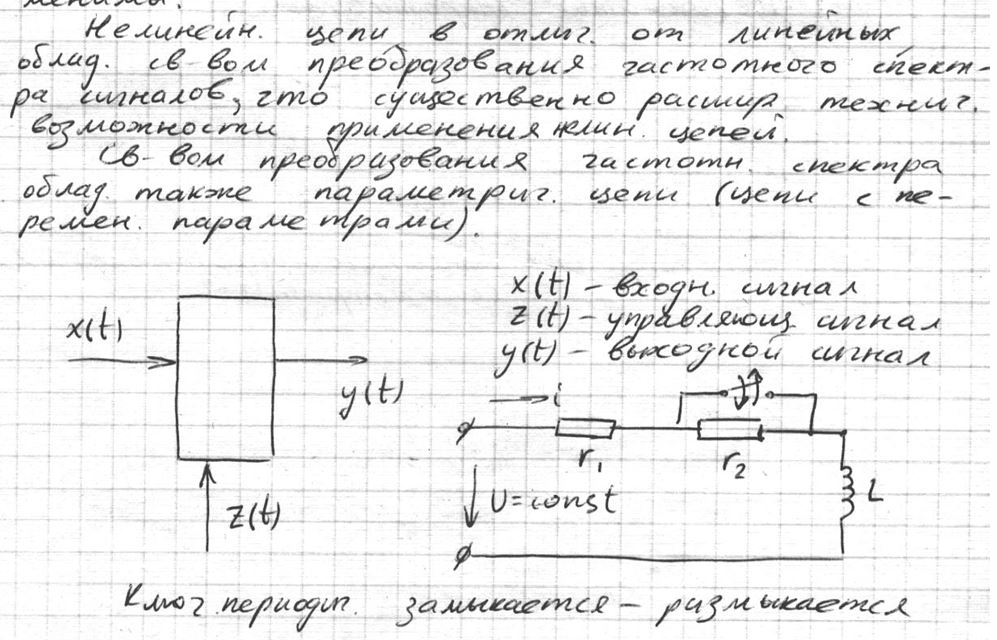 менимы.
Нелинейн. цепи в отлич. от линейных
облад. св-вом преобразования частотного спект-
ра сигналов, что существенно расшир. технич.
возможности применения нелин. цепей.
Св-вом преобразования частотн. спектра
облад. также параметрич. цепи (цепи с пе-
ремен. параметрами).
x(t) – входн. сигнал
z(t) – управляющ. сигнал
y(t) – выходной сигнал
x(t)
y(t)
z(t)
i
r₁
r₂
L
U=const
Ключ периодич. замыкается – размыкается